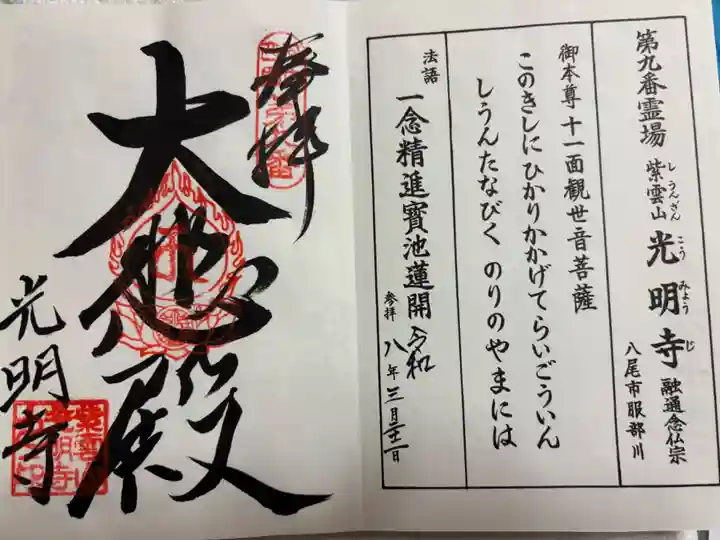 第九番霊場 紫雲山 光明寺 融通念仏宗
しうんざん こうみょうじ
八尾市服部川
御本尊 十一面観世音菩薩
このきしに ひかりかかげて らいごういん
しうんたなびく のりのやまには
法語 一念精進寶池蓮開
参拝 令和八年三月二十二日
奉拝
大悲殿
光明寺